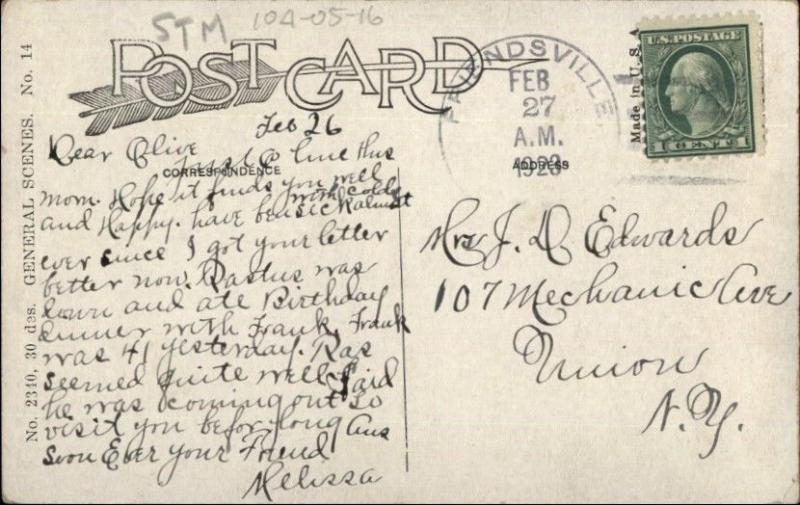 STM 104-05-16
POST CARD
FRIENDSVILLE
FEB
27
A.M.
1923
U.S. POSTAGE
1 CENT 1
Made in U.S.A
No. 2340, 30 des. GENERAL SCENES. No. 14
CORRESPONDENCE
ADDRESS
Feb 26
Dear Olive
Just a line this
morn. Hope it finds you well
and Happy. have been sick almost
with colds
ever since I got your letter
better now. Rastus was
down and ate Birthday
dinner with Frank. Frank
was 41 yesterday. Ras
seemed quite well. Said
he was coming out to
visit you befor long Ans
soon Ever your Friend
Melissa
Mrs J. D Edwards
107 Mechanic Ave
Union
N.Y.